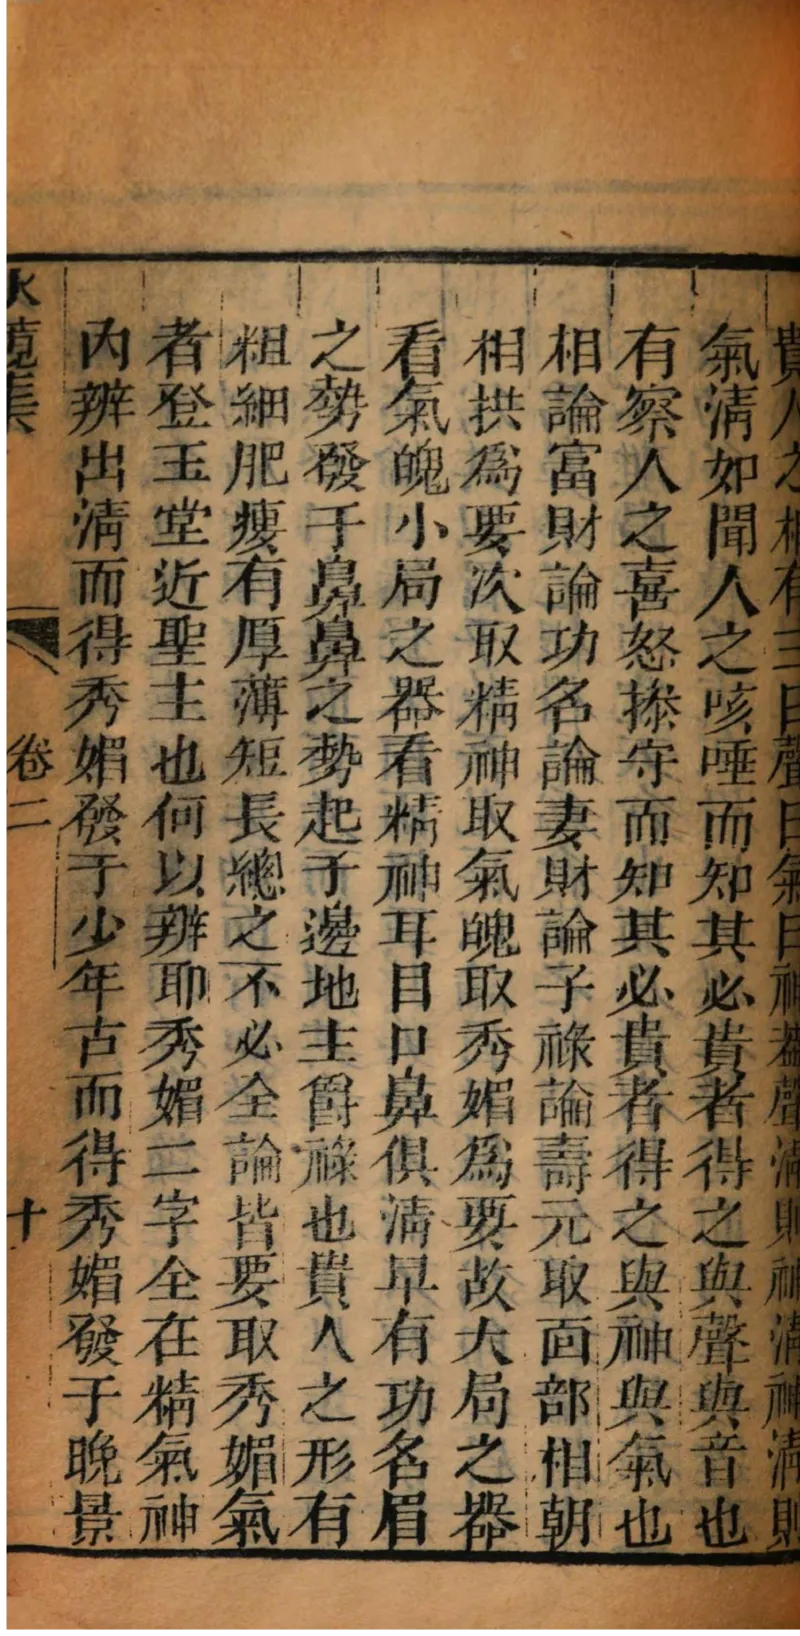 貴人之相有三曰聲曰氣曰神蓋聲淸則神淸神淸則
氣淸如聞人之咳唾而知其必貴者得之與聲與音也
有察人之喜怒操守而知其必貴者得之與神與氣也
相論富財論功名論妻財論子祿論壽元取面部相朝
相拱爲要次取精神取氣魄取秀媚爲要故大局之器
看氣魄小局之器看精神耳目口鼻俱淸早有功名眉
之勢發于鼻鼻之勢起于邊地主爵祿也貴人之形有
粗細肥瘦有厚薄短長總之不必全論皆要取秀媚氣
者登玉堂近聖主也何以辨耶秀媚二字全在精氣神
內辨出淸而得秀媚發于少年古而得秀媚發于晚景
水鏡集
卷二
十